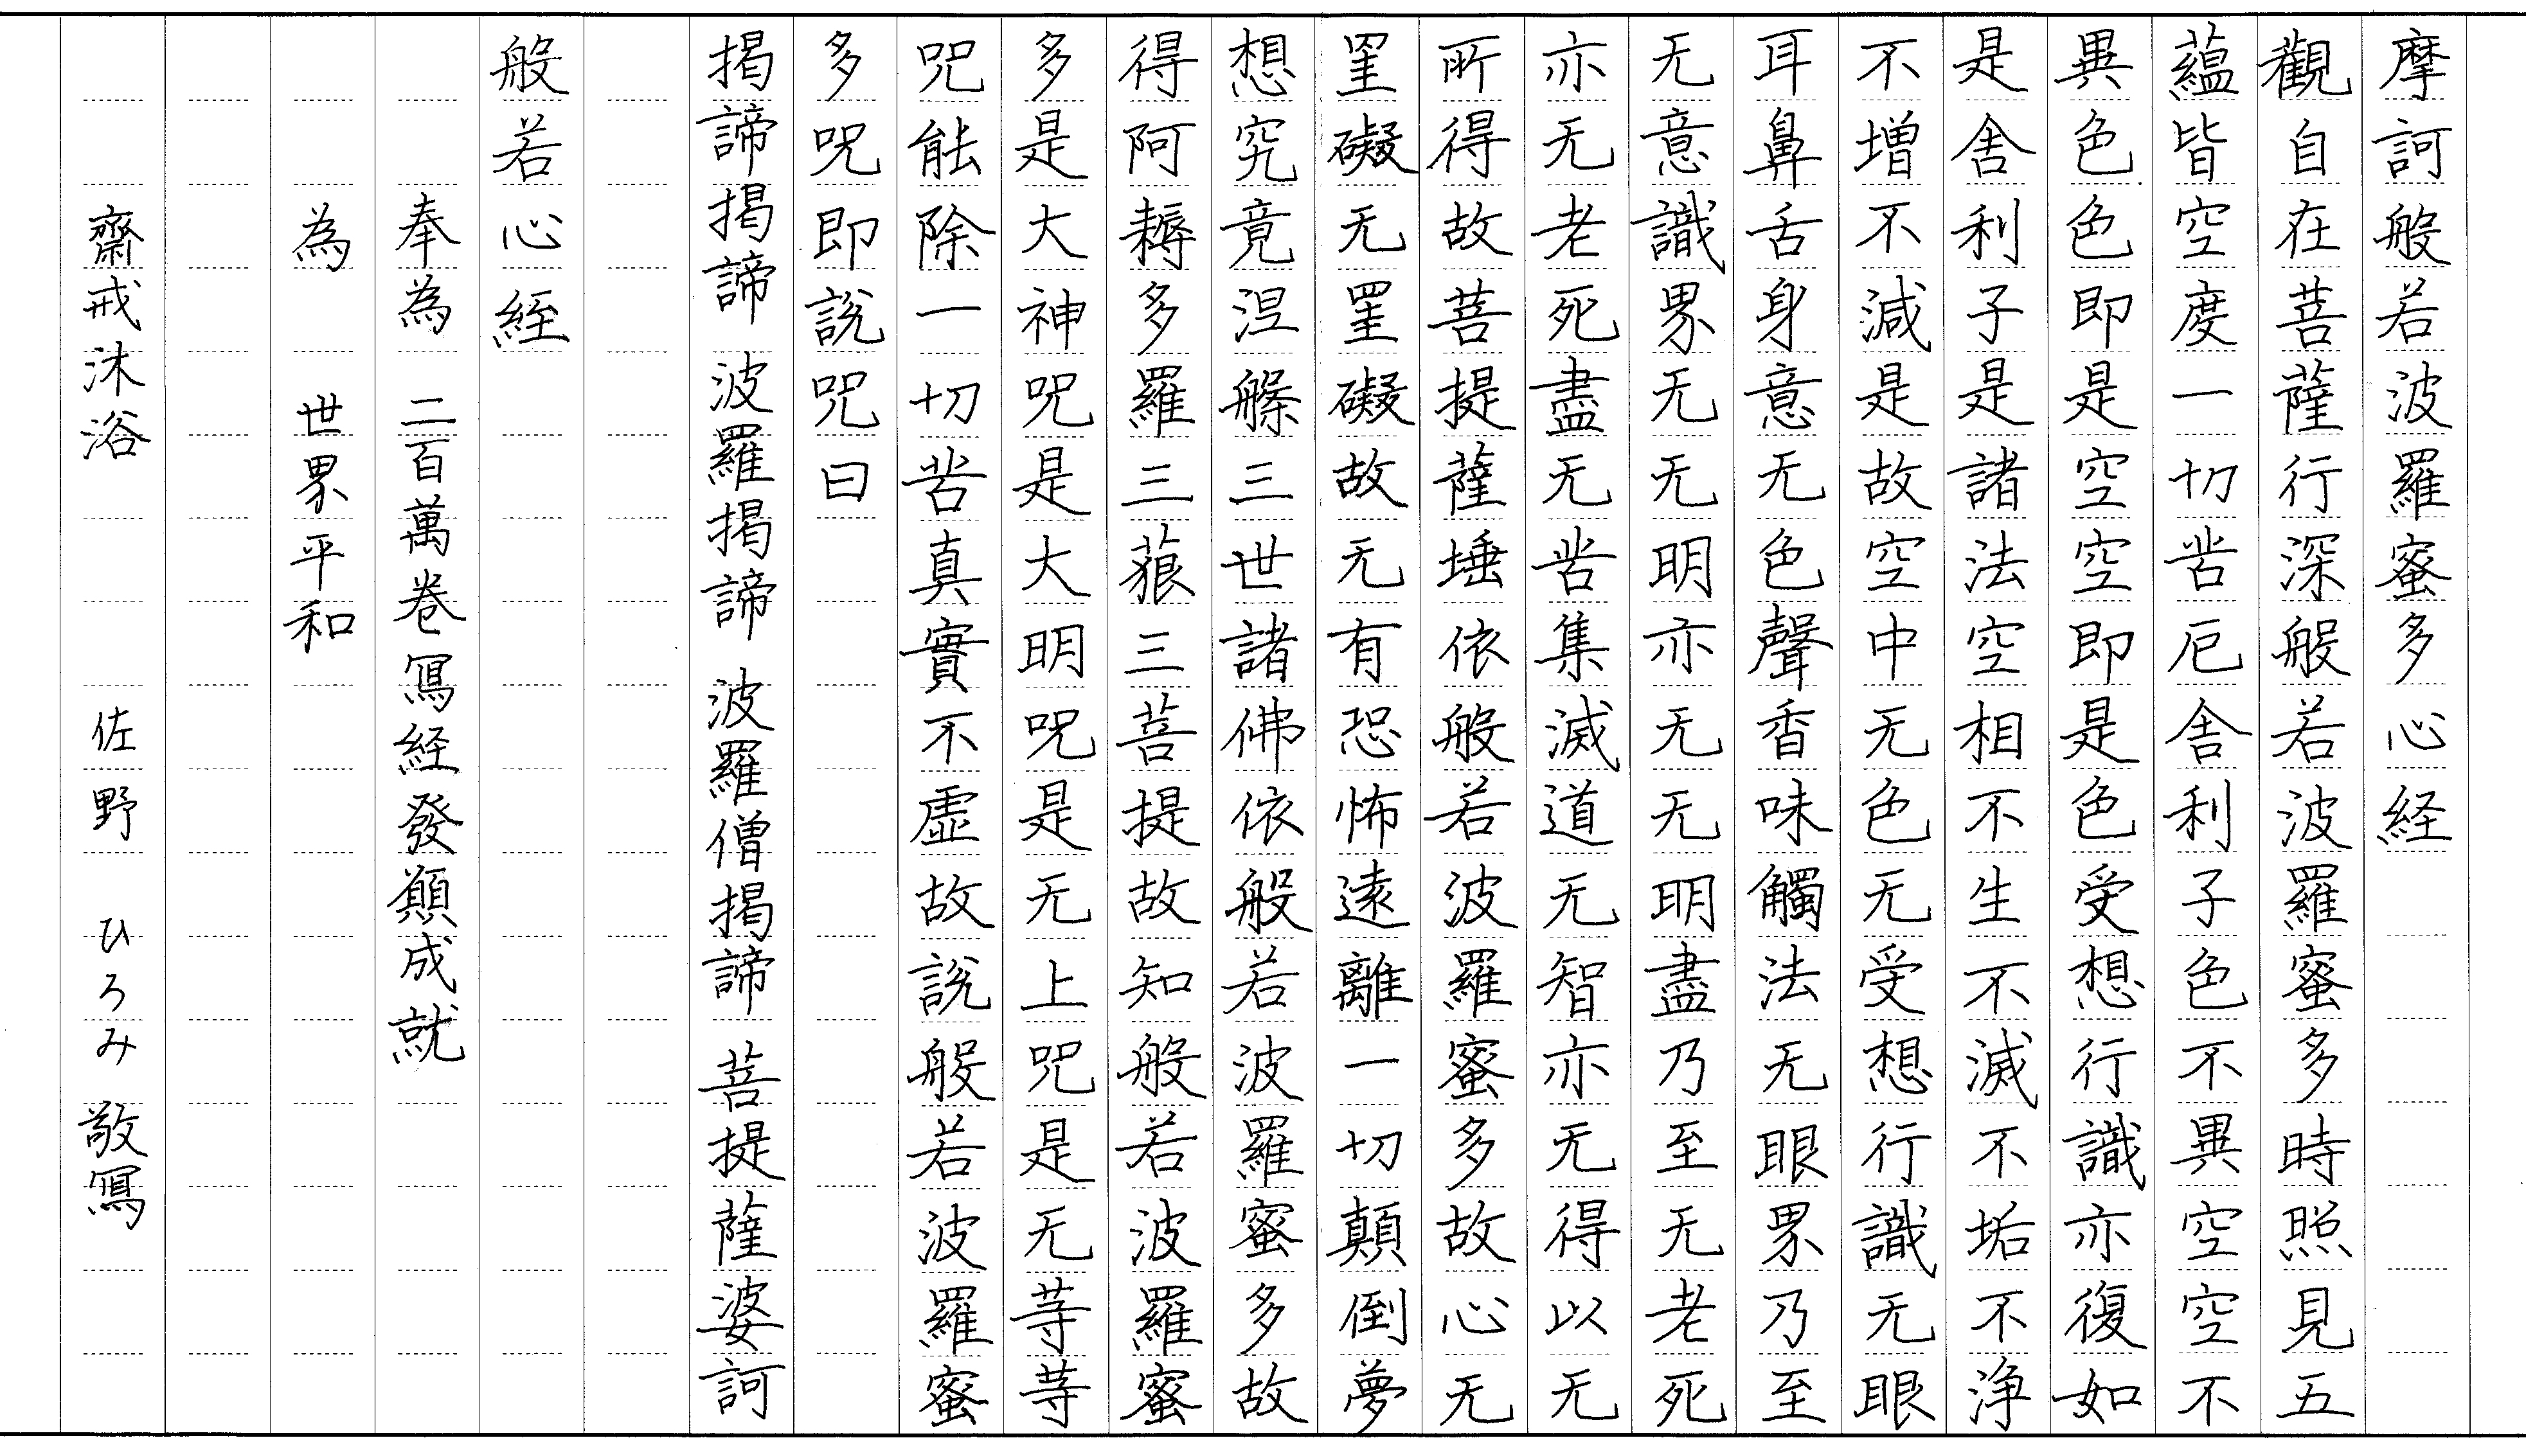 摩訶般若波羅蜜多心経
觀自在菩薩行深般若波羅蜜多時照見五
蘊皆空度一切苦厄舎利子色不異空空不
異色色即是空空即是色受想行識亦復如
是舎利子是諸法空相不生不滅不垢不浄
不増不減是故空中无色无受想行識无眼
耳鼻舌身意无色聲香味觸法无眼界乃至
无意識界无无明亦无无明盡乃至无老死
亦无老死盡无苦集滅道无智亦无得以无
所得故菩提薩埵依般若波羅蜜多故心无
罣礙无罣礙故无有恐怖遠離一切顛倒夢
想究竟涅槃三世諸佛依般若波羅蜜多故
得阿耨多羅三藐三菩提故知般若波羅蜜
多是大神呪是大明呪是无上呪是无等等
呪能除一切苦真實不虚故説般若波羅蜜
多呪即説呪曰
揭諦揭諦 波羅揭諦 波羅僧揭諦 菩提薩婆訶
般若心経
奉為 二百萬巻冩経發願成就
為 世界平和
齋戒沐浴 佐野 ひろみ 敬冩